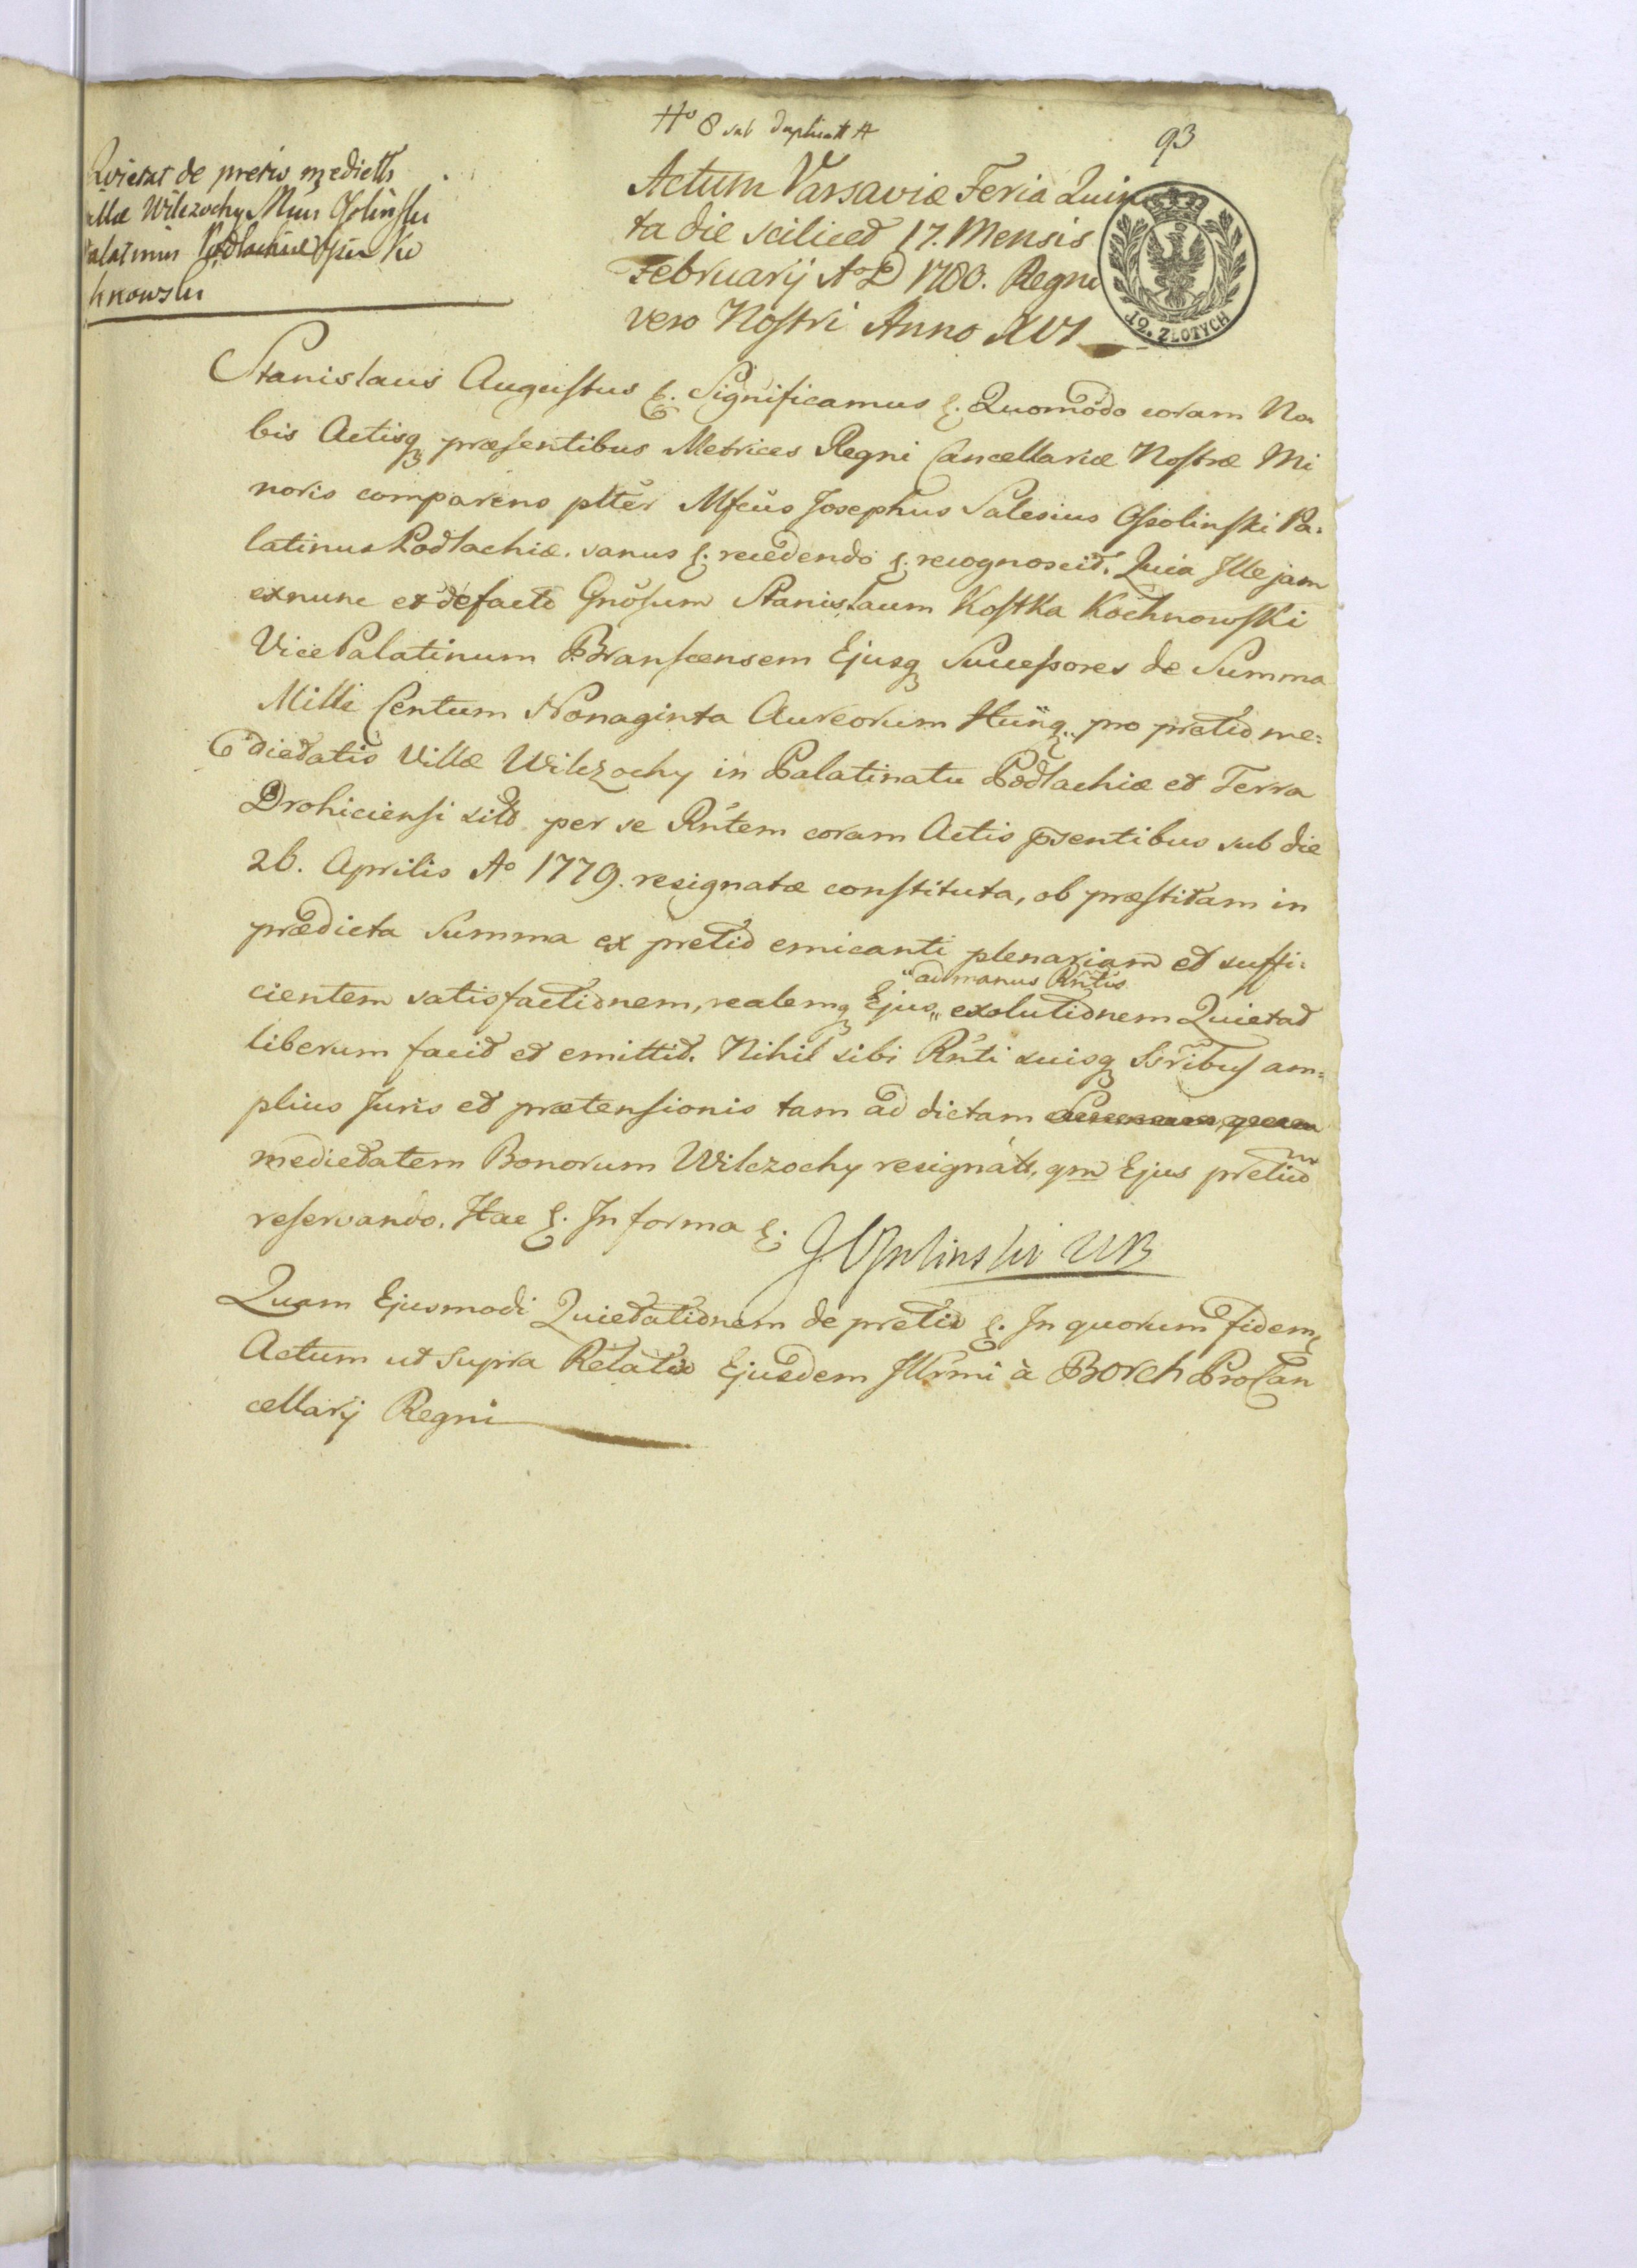 No 8 sub duplicatt A
93
Quietat de pretio mediettis
illæ Wilczochy Mcus Ossolinski
Palatinus Podlachiæ Gsum Ko
hnowski
Actum Varsaviæ Feria Quin
ta die scilicet 17. Mensis
Februarij Ao D 1780. Regni
vero Nostri Anno XVI
12. ZŁOTYCH
Stanislaus Augustus &. Significamus &. Quomodo coram No
bis Actisq præsentibus Metrices Regni Cancellariæ Nostræ Mi
noris comparens plter Mfcus Josephus Salesius Ossolinski Pa:
latinus Podlachiæ. sanus &. recedendo &. recognoscit. Quia Ille jam
exnunc et defacto Gnosum Stanislaum Kostka Kochnowski
Vice Palatinum Branscensem Ejusq Successores de Summa
Milli Centum Nonaginta Aureorum Hung. pro pretio me:
dietatis Villæ Wilczochy in Palatinatu Podlachiæ et Terra
Drohiciensi sitæ per se Rntem coram Actis psentibus sub die
26. Aprilis Ao 1779. resignatæ constituta, ob præstitam in
prædicta Summa ex pretio emicanti plenariam et suffi:
cientem satisfactionem, realemq Ejus „ad manus Rntis„ exolutionem Quietat
liberum facit et emittit. Nihil sibi Rnti suisq Ssribus am:
plius Juris et prætensionis tam ad dictam Summam, quam
medietatem Bonorum Wilczochy resignats, qm Ejus pretium
reservando. Hac &. In forma &. J Ossolinski WP
Quam Ejusmodi Quietationem de pretio &. In quorum fidem &
Actum ut Supra Relatio Ejusdem Illrmi à Borch ProCan
cellarij Regni